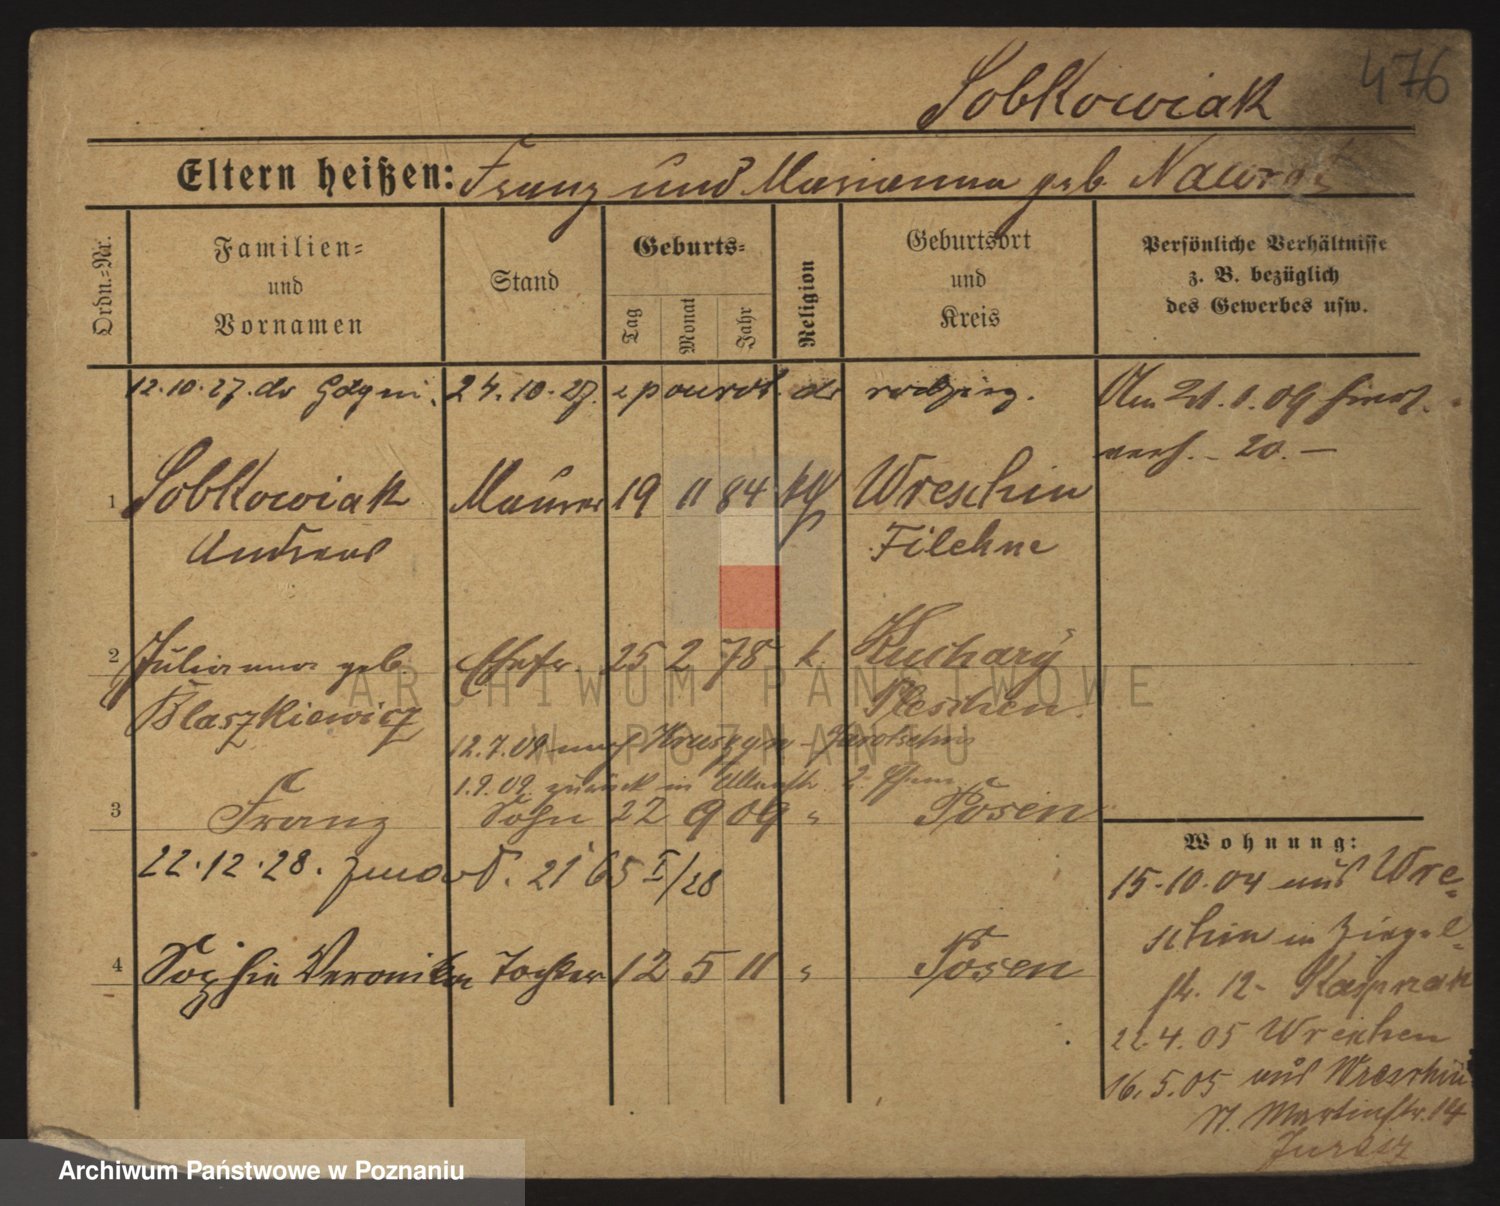 476
Sobkowiak
Eltern heißen: Franz und Marianna geb. Nawrot
Ordn.=Nr.
Familien=
und
Vornamen
Stand
Geburts=
Tag
Monat
Jahr
Religion
Geburtsort
und
Kreis
Persönliche Verhältnisse
z. B. bezüglich
des Gewerbes usw.
12.10.27. do Gdyni. 24.10.27. z powrot. do rodziny.
Am 21.1.09 hier
verh. – 20. –
1 Sobkowiak Maurer 19 11 84 kth Wreschin
Andreas Filehne
2 Julianna geb. Ehefr. 25 2 78 k. Kuchary
Blaszkiewicz Pleschen
12.7.09 nach Kruszyn - Jarotschin
1.9.09. zurück in
3 Franz Sohn 22 9 09 " Posen
22.12.28. 21 65 I/28
4 Sophie Veronika Tochter 12 5 11 " Posen
Wohnung:
15.10.04 aus Wre=
schin in Ziegel=
str. 12 - Kasprzak
22.4.05 Wreschen
16.5.05 aus Wreschin
St. Martinstr. 14
ARCHIWUM PAŃSTWOWE
W POZNANIU
Archiwum Państwowe w Poznaniu